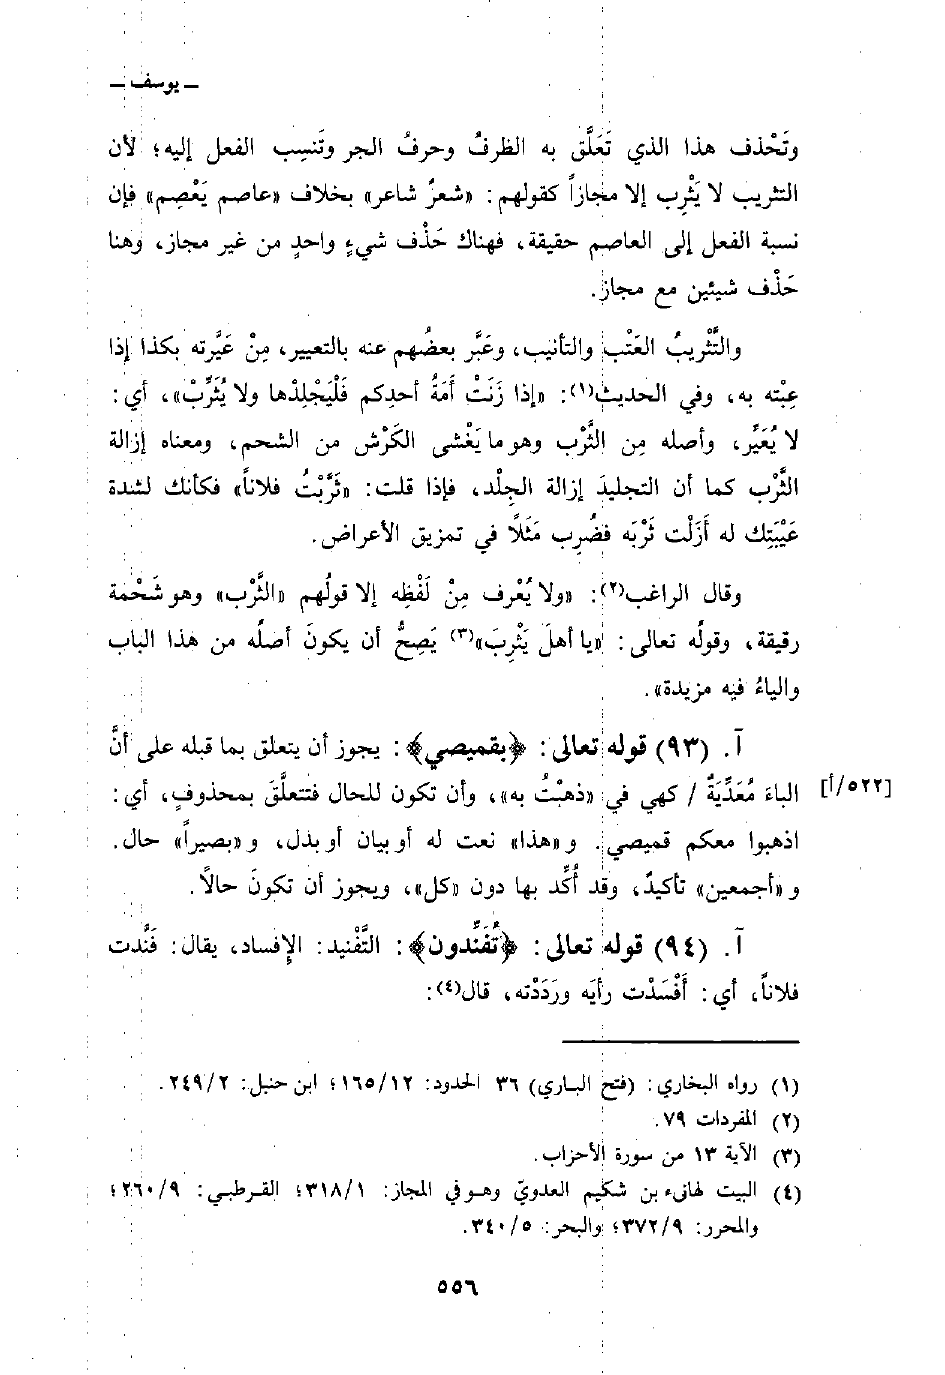 ـ يوسف ـ
وتَحْذف هذا الذي تَعَلَّق به الظرفُ وحرفُ الجر وتَنسِب الفعل إليه؛ لأن
التثريب لا يَثْرِب إلا مجازاً كقولهم: «شعرٌ شاعر» بخلاف «عاصم يَعْصِم» فإن
نسبة الفعل إلى العاصم حقيقة، فهناك حَذْف شيءٍ واحدٍ من غير مجاز، وهنا
حَذْف شيئين مع مجاز.
والتَّثْريبُ العَتْب والتأنيب، وعَبَّر بعضُهم عنه بالتعيير، مِنْ عَيَّرته بكذا إذا
عِبْته به، وفي الحديث(١): «إذا زَنَتْ أَمَةُ أحدِكم فَلْيَجْلِدْها ولا يُثَرِّبْ»، أي:
لا يُعَيِّر، وأصله مِن الثَّرْب وهو ما يَغْشى الكَرْش من الشحم، ومعناه إزالة
الثَّرْب كما أن التجليدَ إزالة الجِلْد، فإذا قلت: «ثَرَّبْتُ فلاناً» فكأنك لشدة
عَيْبَتِك له أَزَلْت ثَرْبَه فضُرِب مَثَلًا في تمزيق الأعراض.
وقال الراغب(٢): «ولا يُعْرف مِنْ لَفْظِه إلا قولُهم «الثَّرْب» وهو شَحْمة
رقيقة، وقولُه تعالى: «يا أهلَ يَثْرِبَ»(٣) يَصِحُّ أن يكونَ أصلُه من هذا الباب
والياءُ فيه مزيدة».
آ. (٩٣) قوله تعالى: ﴿بقميصي﴾: يجوز أن يتعلق بما قبله على أنَّ
الباءَ مُعَدِّيَةٌ / كهي في «ذهبْتُ به»، وأن تكون للحال فتتعلَّقَ بمحذوفٍ، أي: [٥٢٢/أ]
اذهبوا معكم قميصي. و«هذا» نعت له أو بيان أو بدل، و«بصيراً» حال.
و«أجمعين» تأكيدٌ، وقد أُكِّد بها دون «كل»، ويجوز أن تكونَ حالاً.
آ. (٩٤) قوله تعالى: ﴿تُفَنِّدون﴾: التَّفْنيد: الإِفساد، يقال: فَنَّدت
فلاناً، أي: أَفْسَدْت رأيَه ورَدَدْته، قال(٤):
(١) رواه البخاري: (فتح الباري) ٣٦ الحدود: ١٦٥/١٢؛ ابن حنبل: ٢٤٩/٢.
(٢) المفردات ٧٩.
(٣) الآية ١٣ من سورة الأحزاب.
(٤) البيت لهانىء بن شكيم العدويّ وهو في المجاز: ٣١٨/١؛ القرطبي: ٢٦٠/٩؛
والمحرر: ٣٧٢/٩؛ والبحر: ٣٤٠/٥.
٥٥٦